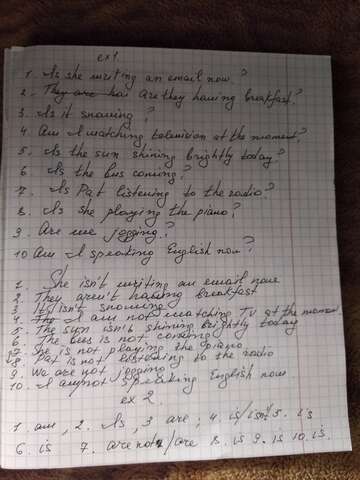 ex 1.
1. Is she writing an email now?
2. They are hai Are they having breakfast?
3. Is it snowing?
4. Am I watching television at the moment?
5. Is the sun shining brightly today?
6 Is the bus coming?
7. Is Pat listening to the radio?
8. Is she playing the piano?
9. Are we jogging?
10 Am I speaking English now?
1. She isn't writing an email now
2. They aren't having breakfast
3 It isn't snowing
4. I am not watching TV at the momen
5. The sun isn't shining brightly today
6. The bus is not coming
7. She is not playing the piano
8. Pat is not listening to the radio
9. We are not jogging
10. I am not speaking English now
ex 2.
1. am, 2. Is, 3 are; 4. is/isn't 5. is
6. is 7. are not/are 8. is 9. is 10. is.